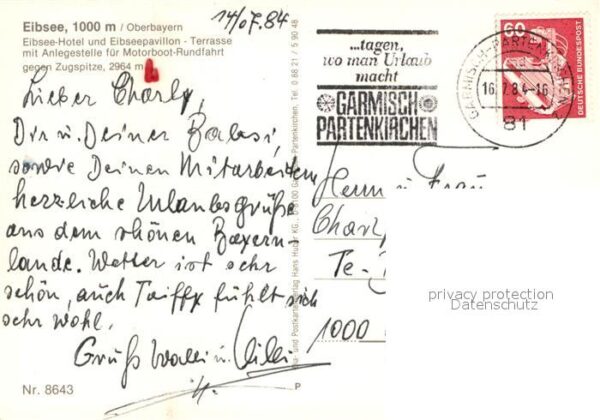 14/07.84
Eibsee, 1000 m / Oberbayern
Eibsee-Hotel und Eibseepavillon - Terrasse
mit Anlegestelle für Motorboot-Rundfahrt
gegen Zugspitze, 2964 m
Lieber Charly,
Dir u. Deiner
sowie Deinen Mitarbeitern
herzliche Urlaubsgrüße
aus dem schönen Bayern-
lande. Wetter ist sehr
schön, auch fühlt sich
sehr wohl.
Gruß u.
Nr. 8643
P
Postkartenverlag Hans Huber KG., Garmisch-Partenkirchen, Tel. 0 88 21 / 5 90 48
...tagen,
wo man Urlaub
macht
GARMISCH
PARTENKIRCHEN
GARMISCH-PARTENKIRCHEN
16.7.84-16
81
60
DEUTSCHE BUNDESPOST
Herrn u. Frau
Te-
1000
privacy protection
Datenschutz